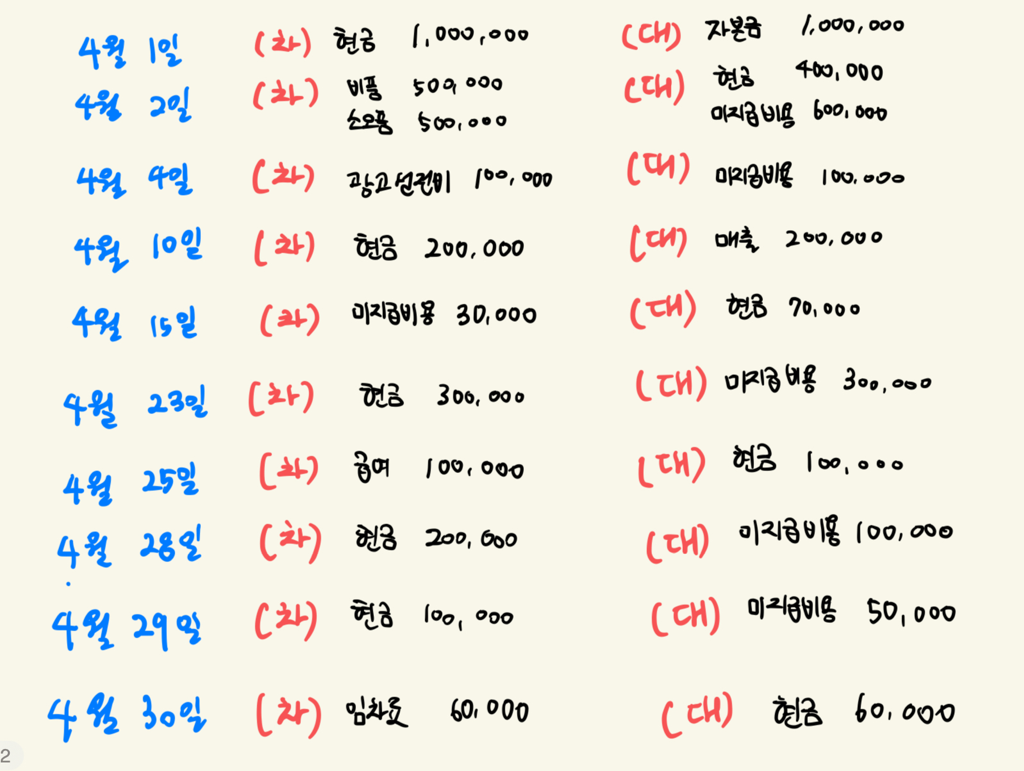 4월 1일 (차) 현금 1,000,000 (대) 자본금 1,000,000
4월 2일 (차) 비품 500,000 (대) 현금 400,000
소모품 500,000 미지급비용 600,000
4월 4일 (차) 광고선전비 100,000 (대) 미지급비용 100,000
4월 10일 (차) 현금 200,000 (대) 매출 200,000
4월 15일 (차) 미지급비용 30,000 (대) 현금 70,000
4월 23일 (차) 현금 300,000 (대) 미지급비용 300,000
4월 25일 (차) 급여 100,000 (대) 현금 100,000
4월 28일 (차) 현금 200,000 (대) 미지급비용 100,000
4월 29일 (차) 현금 100,000 (대) 미지급비용 50,000
4월 30일 (차) 임차료 60,000 (대) 현금 60,000
2